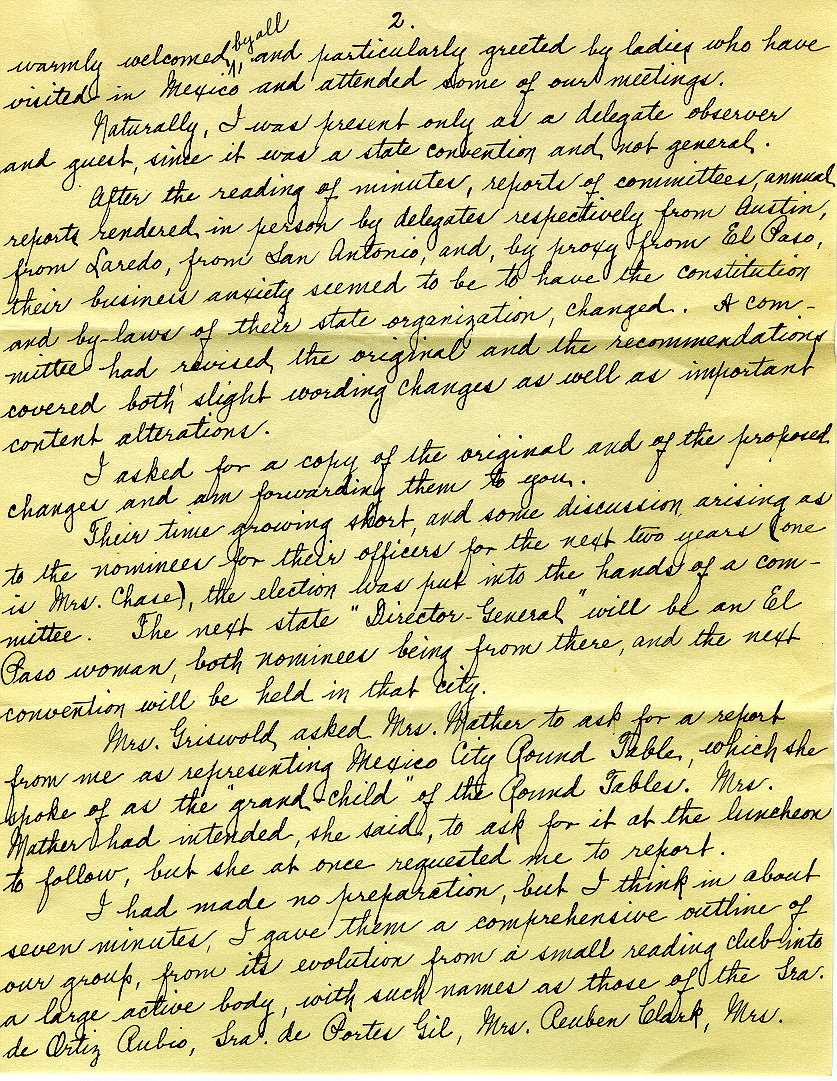 2.
warmly welcomed, by all and particularly greeted by ladies who have
visited in Mexico and attended some of our meetings.
Naturally, I was present only as a delegate observer
and guest, since it was a state convention and not general.
After the reading of minutes, reports of committees, annual
reports rendered in person by delegates respectively from Austin,
from Laredo, from San Antonio, and, by proxy from El Paso,
their business anxiety seemed to be to have the constitution
and by-laws of their state organization, changed. A com-
mittee had revised the original and the recommendations
covered both slight wording changes as well as important
content alterations.
I asked for a copy of the original and of the proposed
changes and am forwarding them to you.
Their time growing short, and some discussion arising as
to the nominees for their officers for the next two years (one
is Mrs. Chase), the election was put into the hands of a com-
mittee. The next state "Director-General" will be an El
Paso woman, both nominees being from there, and the next
convention will be held in that city.
Mrs. Griswold asked Mrs. Mather to ask for a report
from me as representing Mexico City Round Table, which she
spoke of as the "grand-child" of the Round Tables. Mrs.
Mather had intended, she said, to ask for it at the luncheon
to follow, but she at once requested me to report.
I had made no preparation, but I think in about
seven minutes, I gave them a comprehensive outline of
our group, from its evolution from a small reading club into
a large active body, with such names as those of the Sra.
de Ortiz Rubio, Sra. de Portes Gil, Mrs. Reuben Clark, Mrs.